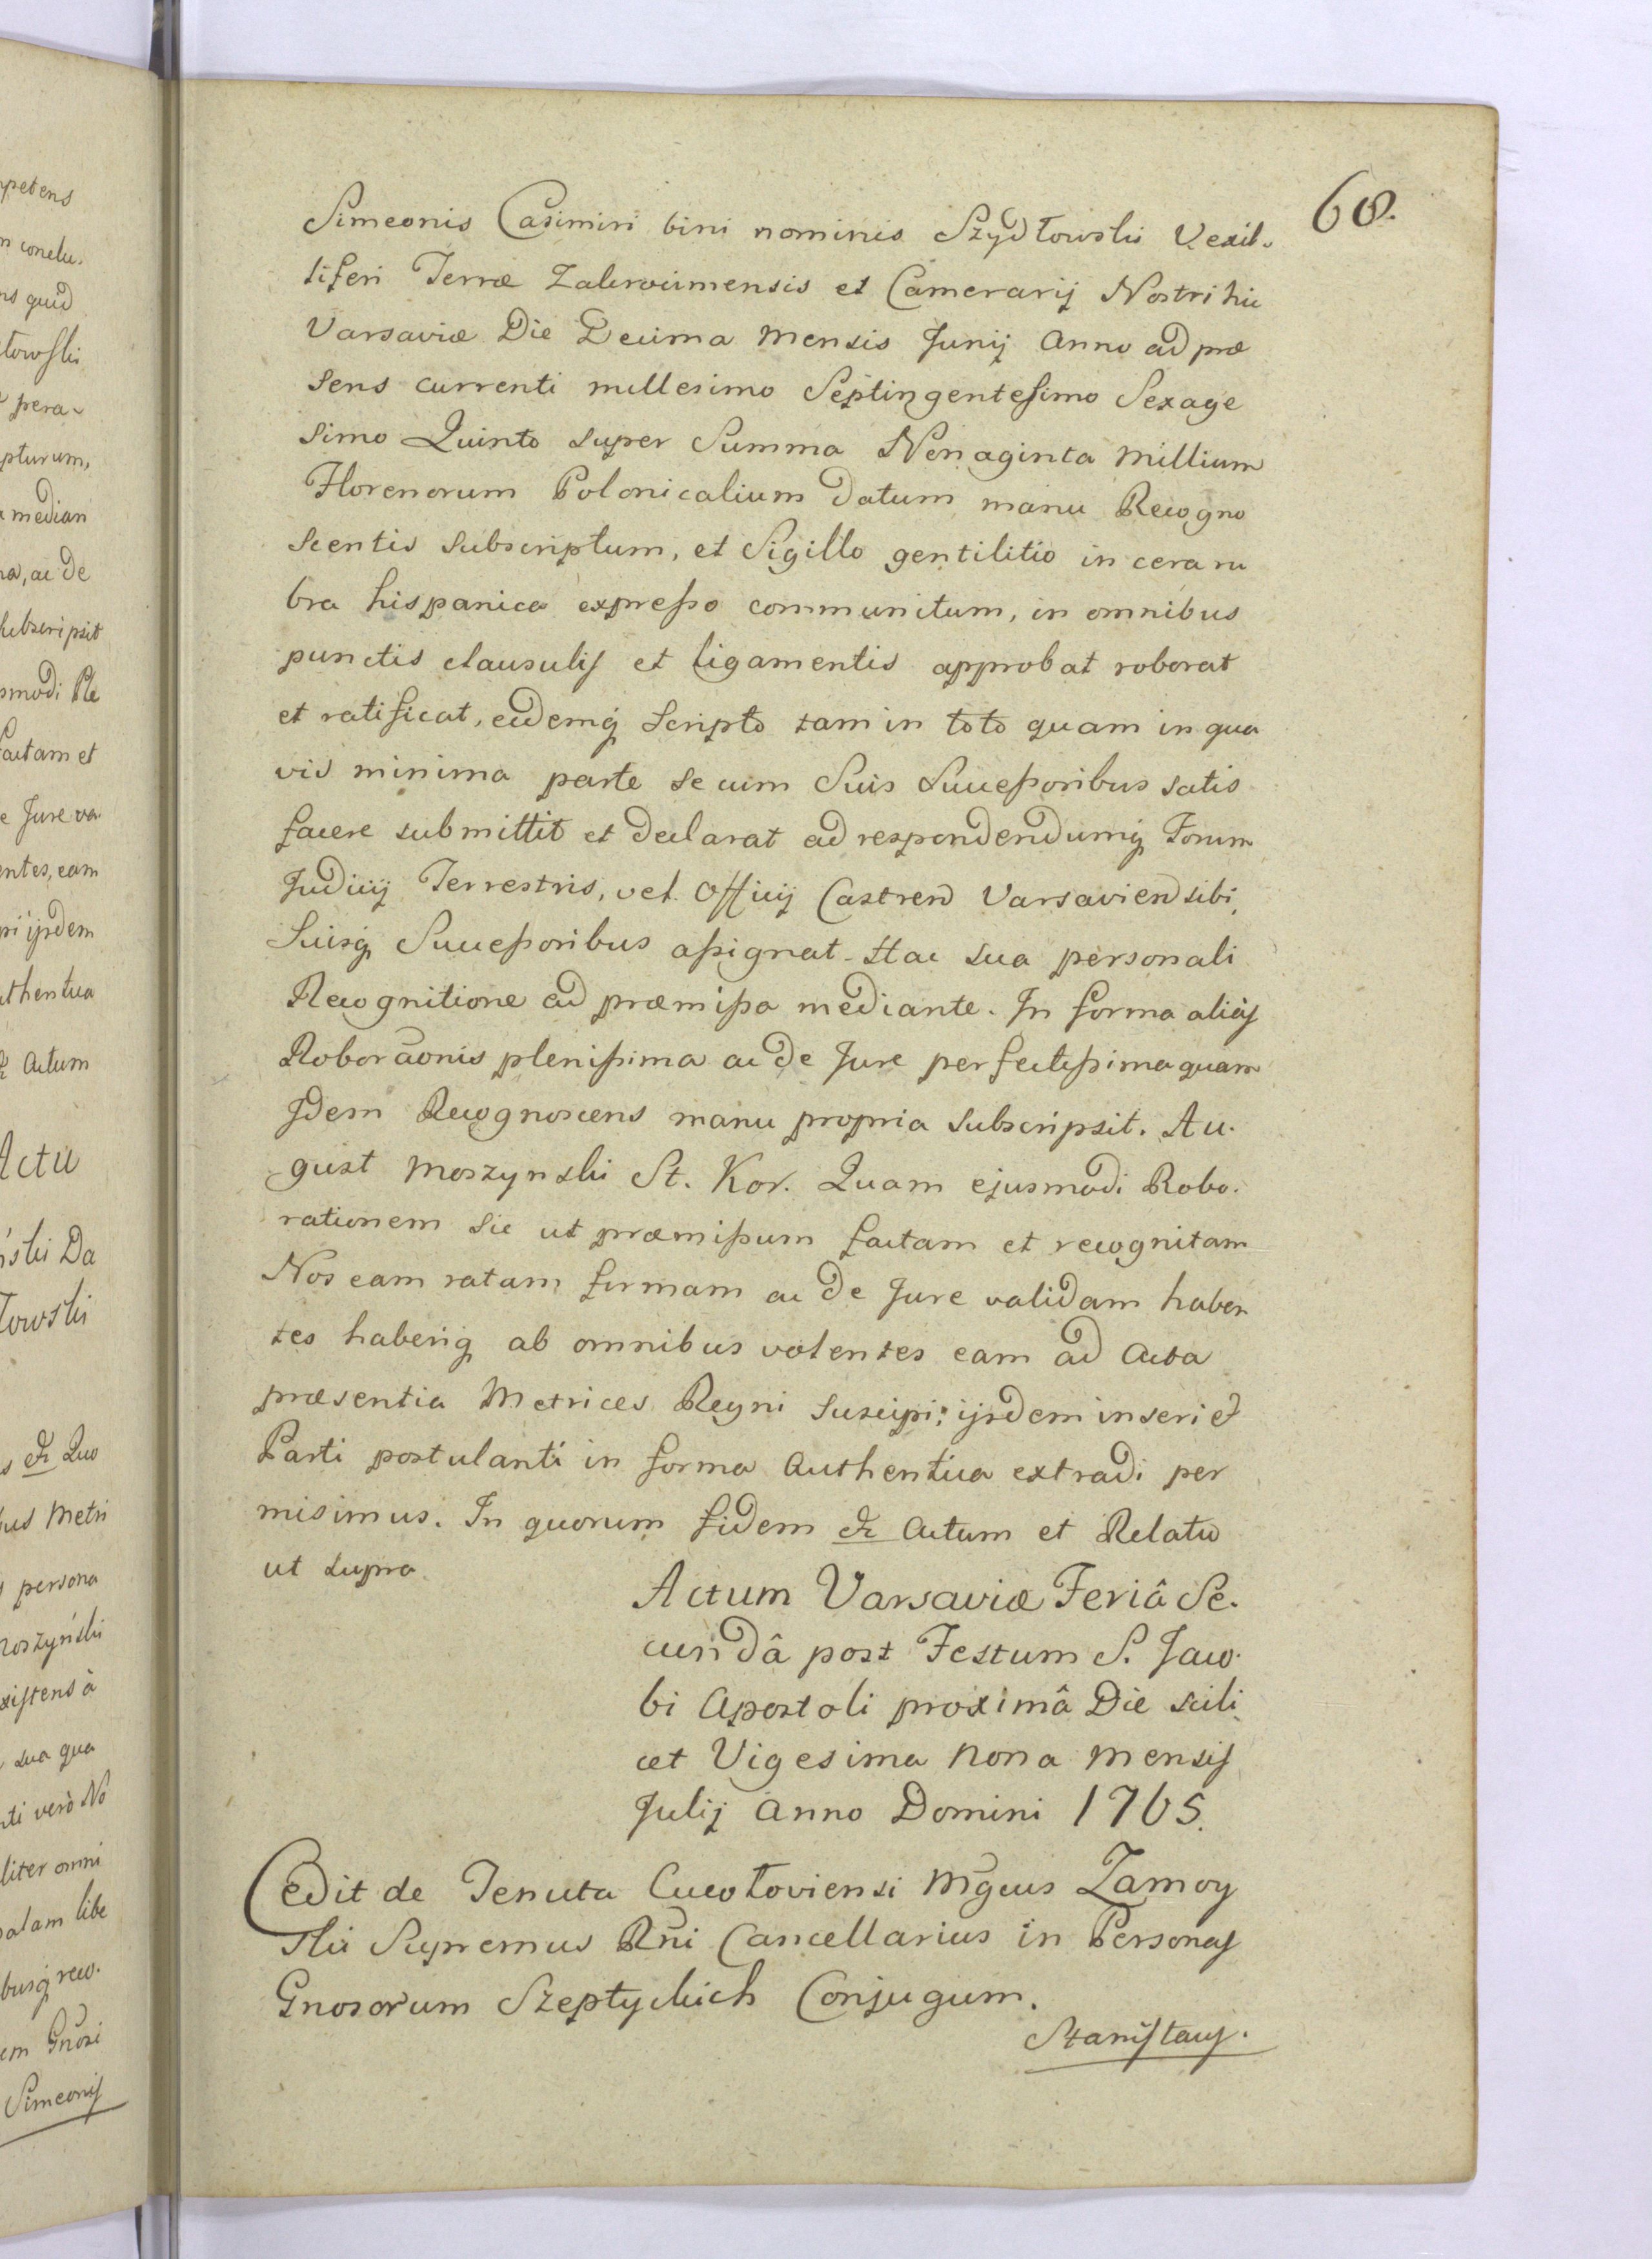 68.
Simeonis Casimiri bini nominis Szydłowski Vexil-
liferi Terræ Zakrocimensis et Camerarij Nostri hic
Varsaviæ Die Decima Mensis Junij Anno ad præ
sens currenti millesimo Septingentesimo Sexage
simo Quinto super Summa Nonaginta Millium
Florenorum Polonicalium datum manu Recogno
scentis subscriptum, et Sigillo gentilitio in cera ru
bra hispanica expresso communitum, in omnibus
punctis clausulis et ligamentis approbat roborat
et ratificat, eidemq scripto tam in toto quam in qua
vis minima parte se cum Suis Successoribus satis
facere submittit et declarat ad respondendumq Forum
Judicij Terrestris, vel Officij Castren Varsavien sibi,
Suisq Successoribus assignat Hac sua personali
Recognitione ad præmissa mediante. In forma alicis
Roboraonis plenissima ac de Jure perfectissima quam
Idem Recognoscens manu propria subscripsit. Au-
gust Moszynski St. Kor. Quam ejusmodi Robo-
rationem sic ut præmissum factam et recognitam
Nos eam ratam firmam ac de Jure validam haben
tes haberiq ab omnibus volentes eam ad Acta
præsentia Metrices Regni suscipi; ijsdem inseri et
Parti postulanti in forma Authentica extradi per
misimus. In quorum fidem etc Actum et Relatio
ut supra
Actum Varsaviæ Feriâ Se-
cundâ post Festum S. Jaco-
bi Apostoli proximâ Die scili
cet Vigesima Nona Mensis
Julij Anno Domini 1765.
Cedit de Tenuta Cucołoviensi Mgcus Zamoy
ski Supremus Rni Cancellarius in Personas
Gnosorum Szeptyckich Conjugum.
Stanisłaus.